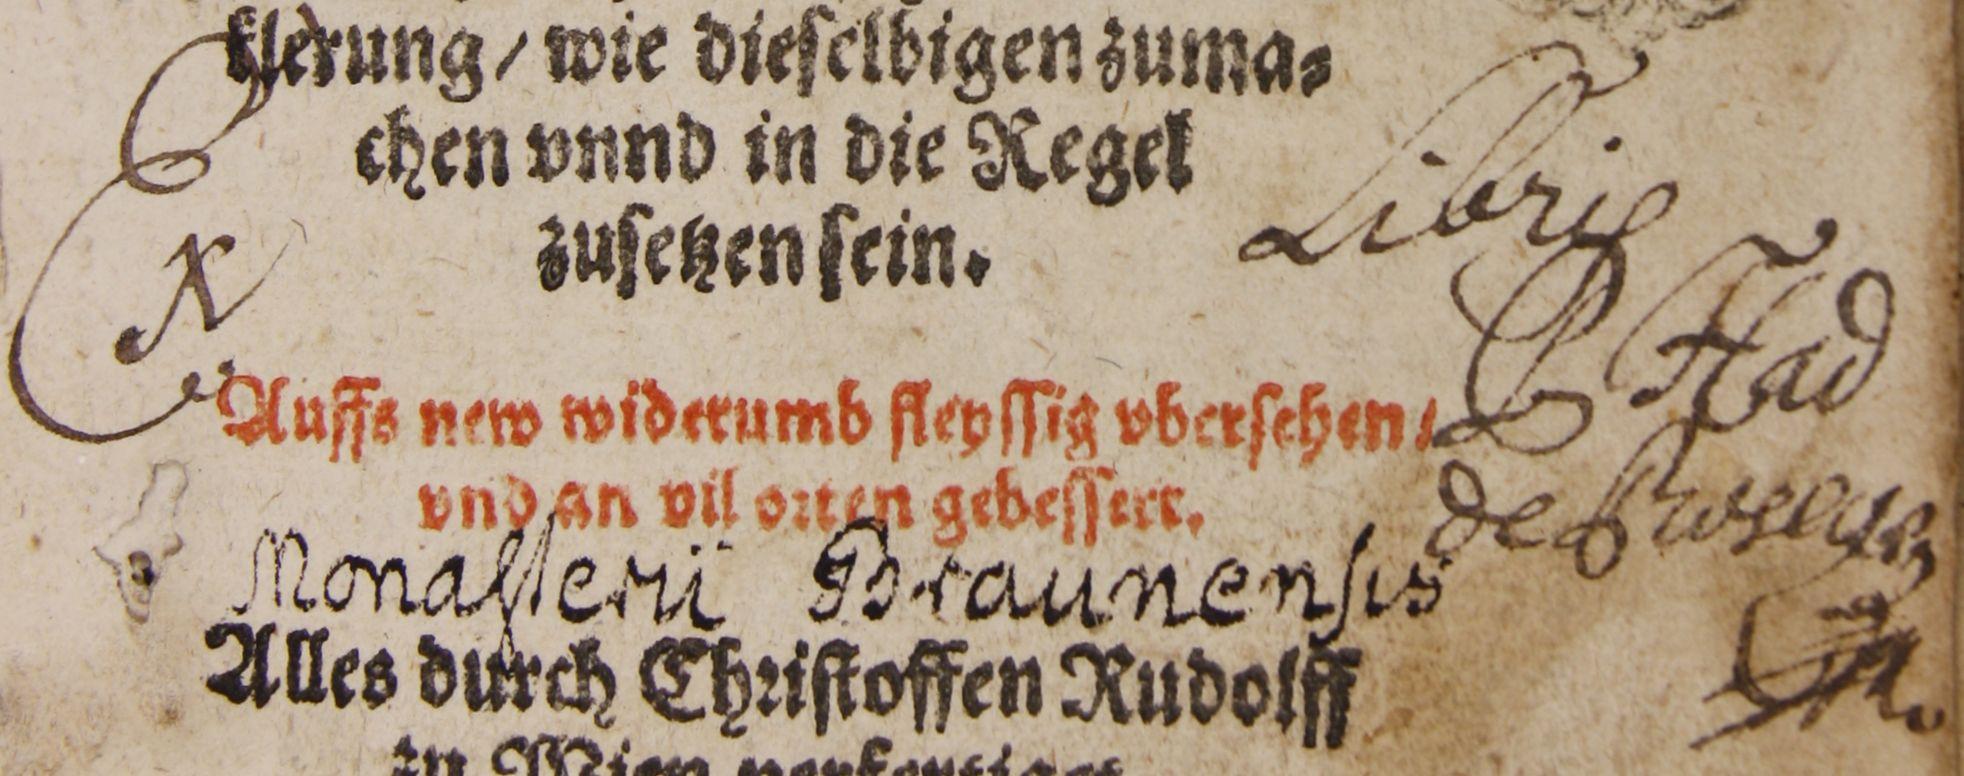 klerung/ wie dieselbigen zuma⸗
chen vnnd in die Regel
zusetzen sein.
Ex
Libris
Auffs new widerumb fleyssig vbersehen/
vnd an vil orten gebessert.
de
Monasterii Braunensis
Alles durch Christoffen Rudolff
zu Wien verfertiget